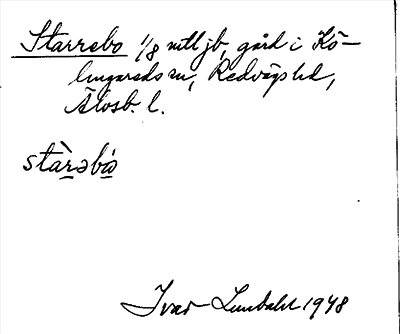 Starrebo 1/8 mtl jb, gård i Kö-
lingareds sn, Redvägs hd,
Älvsb. l.
stàrəbo̒
Ivar Lundahl 1948